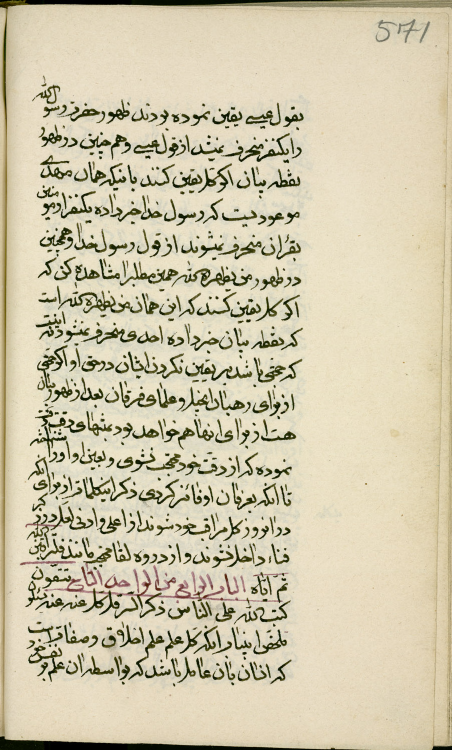 571
بقول عیسی یقین نموده بودند ظهور حضرت رسول الله
را یکنفر منحرف نمیشد از قول عیسی و هم چنین در ظهور
نقطه بیان اگر کل یقین کنند باینکه همان مهدی
موعودیست که رسول خدا خبر داده یکنفر از مومنین
بقران منحرف نمیشوند از قول رسول خدا و همچنین
در ظهور من یظهره الله همین مطلب را مشاهده کن که
اگر کل یقین کنند که این همان من یظهره الله است
که نقطه بیان خبر داده احدی منحرف نمیشود
که محتجب باشد بر یقین نکردن ایشان در حق او اگر حقی
از برای رهبان انجیل و علمای فرقان بعد از ظهور بیان
هست از برای انها هم خواهد بود بمنتهای دقت
نموده که از دقت خود محتجب نشوی و بعین او او را شناخته
تا انکه بعرفان او فائز گردی ذکر اینکلمات از برای انکه
در انروز کل مراقب خود شوند از اعلی و ادنی لعل در
فناء داخل نشوند و از ذروه لقا محتجب نمانند فلتراقبن
ثم ایاه الباب الرابع من الواحد التاسع تتقون
کتب الله علی الناس ذکر السر فلا کل عنه عنه
ملخص این باب انکه کل علم علم اخلاق و صفات است
که انسان بان عامل باشد که بواسطه ان علم